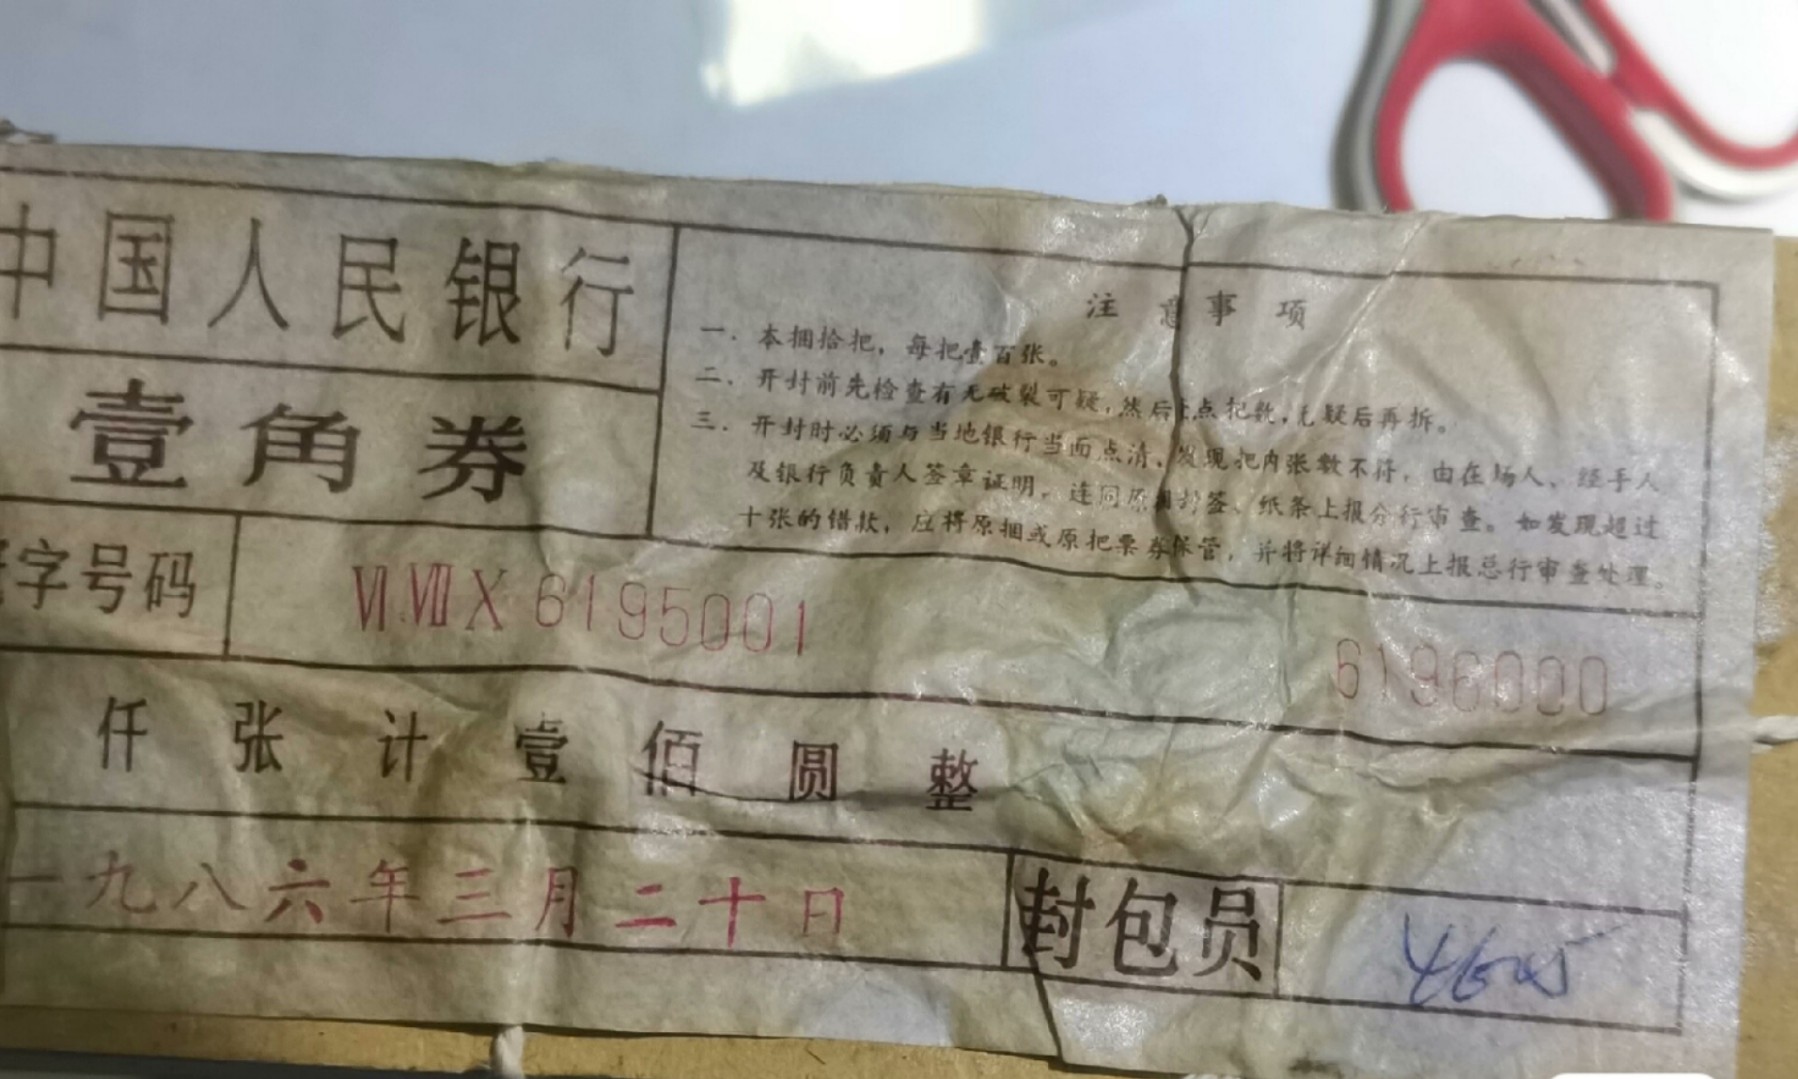 中国人民银行
壹角券
字号码 ⅥⅦX 6195001 6196000
仟张计壹佰圆整
一九八六年三月二十日
封包员
注意事项
一. 本捆拾把，每把壹百张。
二. 开封前先检查有无破裂可疑，然后点把数，无疑后再拆。
三. 开封时必须与当地银行当面点清，发现把内张数不符，由在场人、经手人
及银行负责人签章证明，连同原捆封签、纸条上报分行审查。如发现超过
十张的错款，应将原捆或原把票券保管，并将详细情况上报总行审查处理。